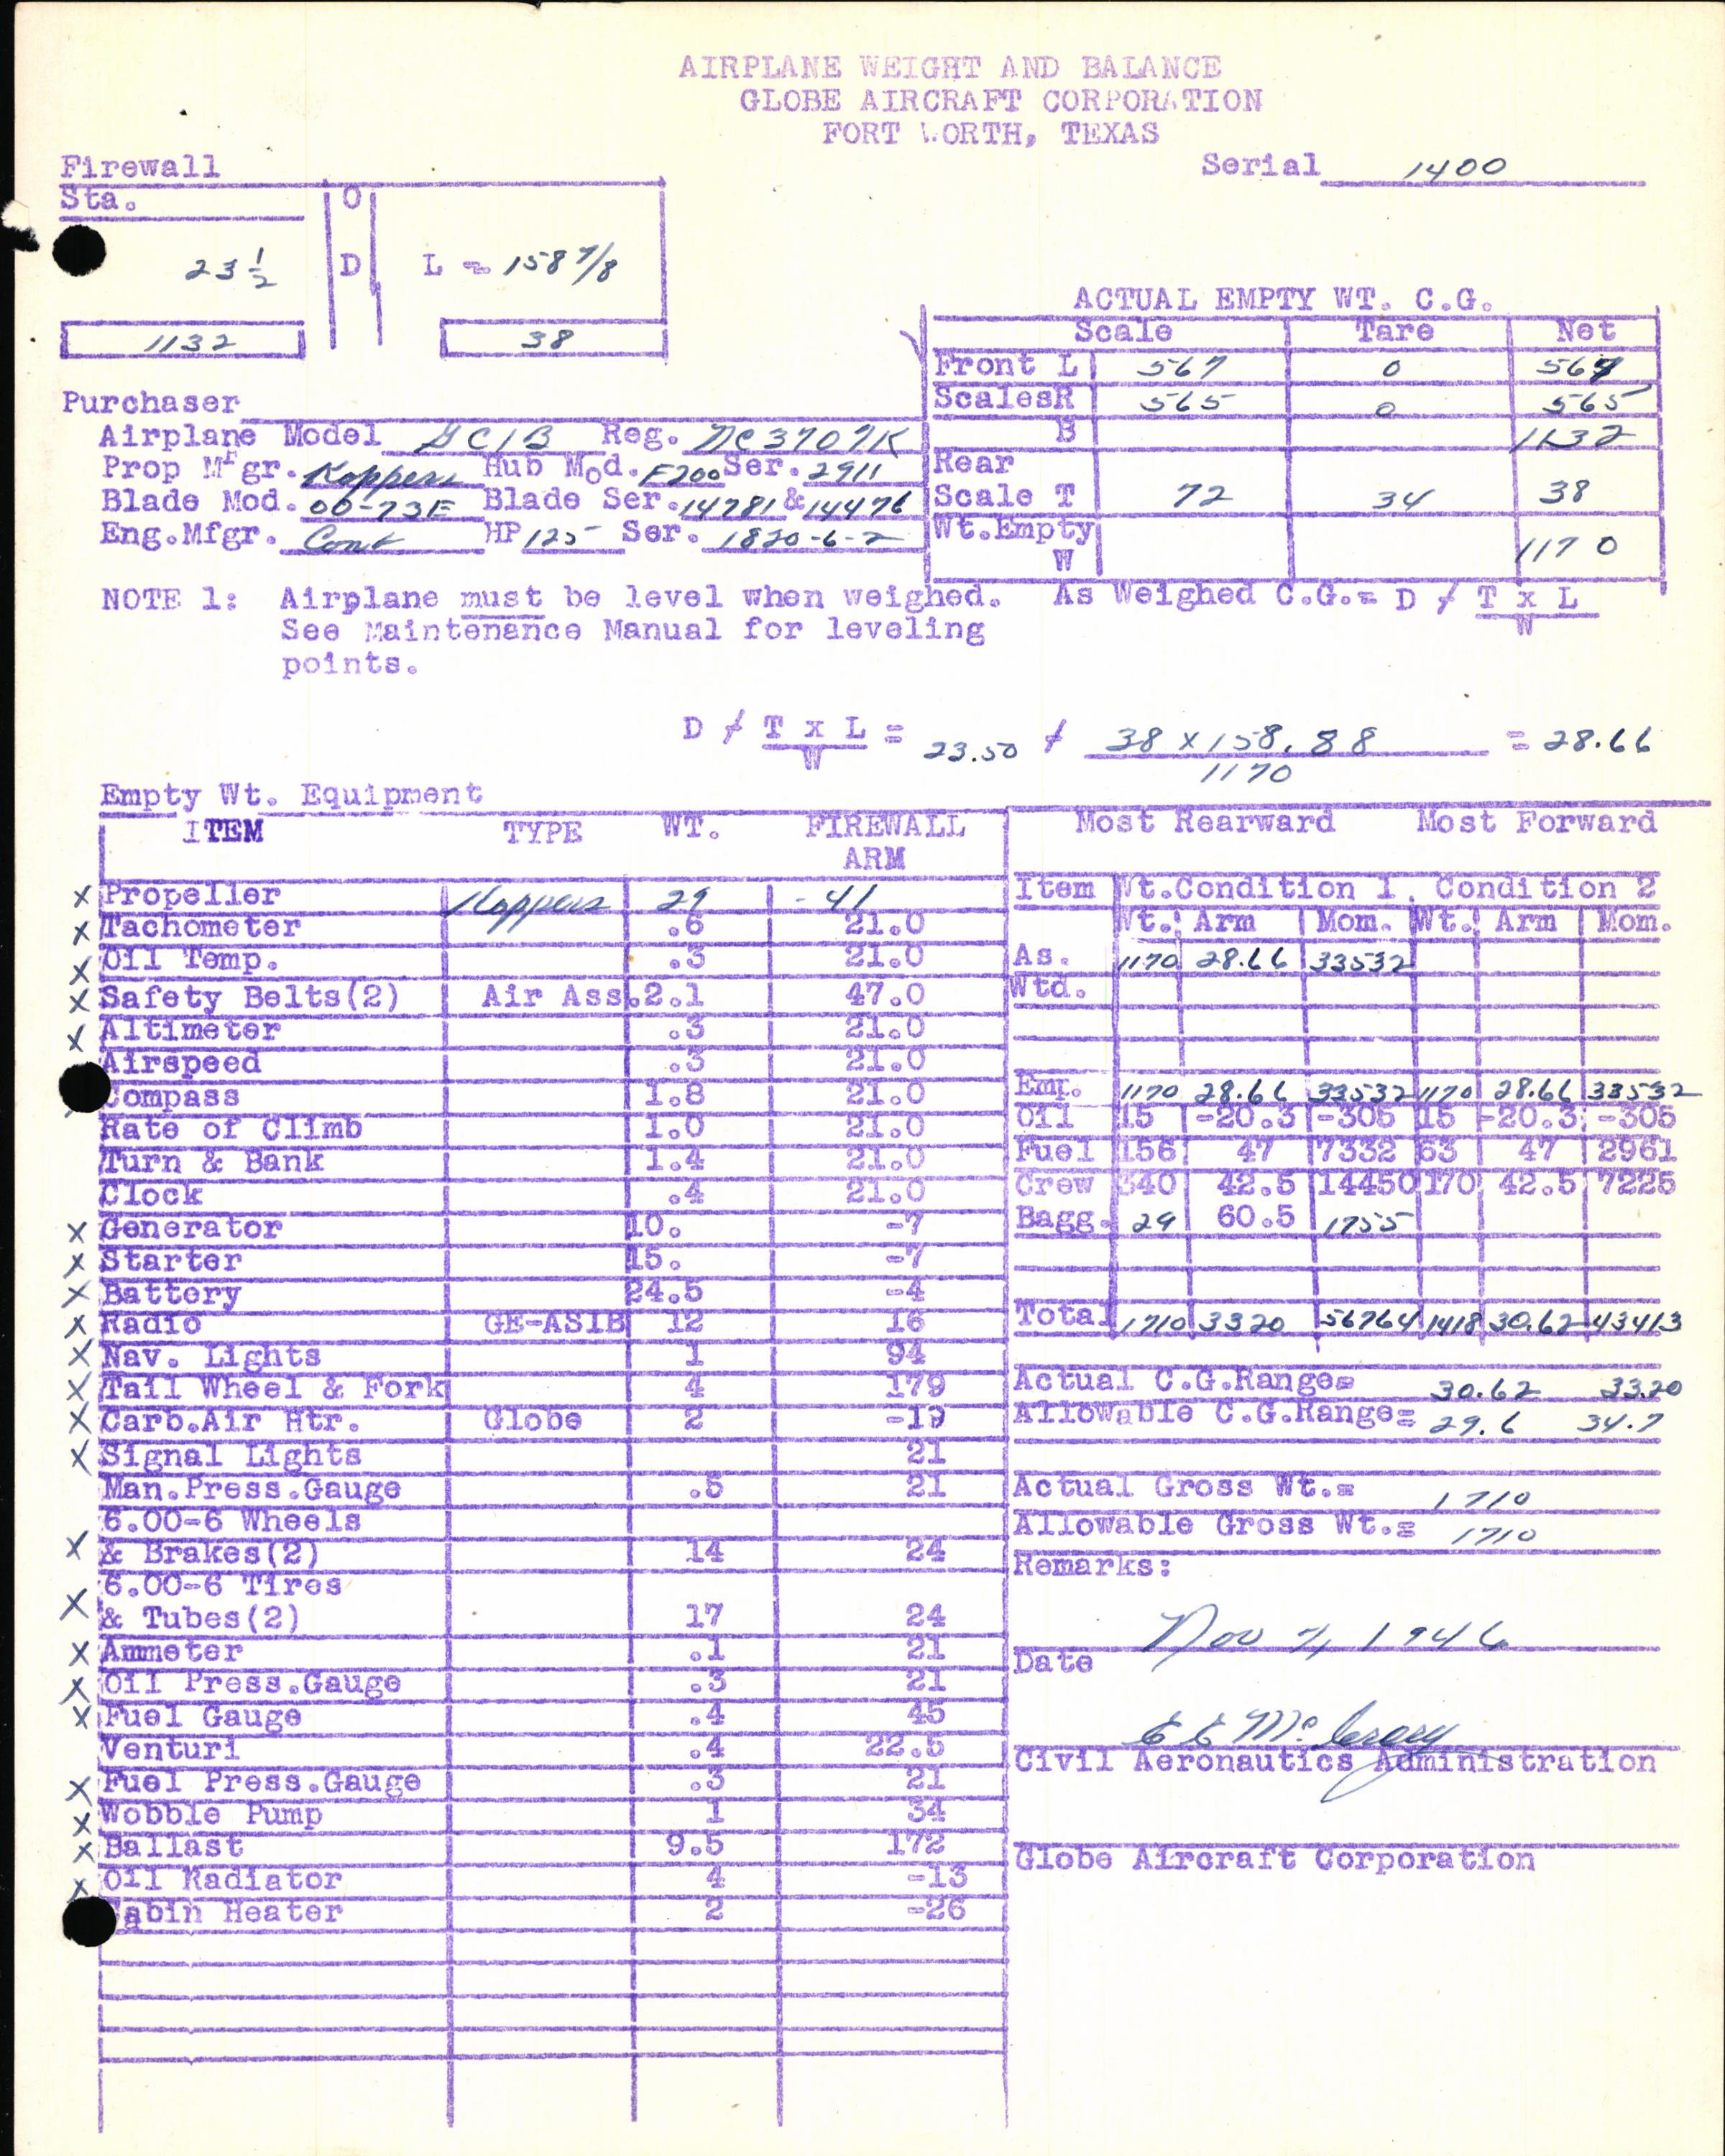 AIRPLANE WEIGHT AND BALANCE
GLOBE AIRCRAFT CORPORATION
FORT WORTH, TEXAS
Serial 1400
Firewall
Sta. O
23 1/2 D L = 158 7/8
1132 38
ACTUAL EMPTY WT. C.G.
Scale Tare Net
Front L 567 0 567
Scales R 565 0 565
B 1132
Rear
Scale T 72 34 38
Wt.Empty
W 1170
Purchaser
Airplane Model GC1B Reg. NC3707K
Prop Mfgr. Koppers Hub Mod. F200 Ser. 2911
Blade Mod. 00-73E Blade Ser. 14781 & 14476
Eng.Mfgr. Cont HP 125 Ser. 1820-6-2
NOTE 1: Airplane must be level when weighed.
See Maintenance Manual for leveling
points.
As Weighed C.G.= D ≠ T x L
W
D ≠ T x L = 23.50 ≠ 38 x 158.88 = 28.66
W 1170
Empty Wt. Equipment
ITEM TYPE WT. FIREWALL
ARM
x Propeller Koppers 29 -41
x Tachometer .6 21.0
x Oil Temp. .3 21.0
x Safety Belts(2) Air Ass. 2.1 47.0
x Altimeter .3 21.0
Airspeed .3 21.0
Compass 1.8 21.0
Rate of Climb 1.0 21.0
Turn & Bank 1.4 21.0
Clock .4 21.0
x Generator 10. -7
x Starter 15. -7
x Battery 24.5 -4
x Radio GE-AS1B 12 16
x Nav. Lights 1 94
x Tail Wheel & Fork 4 179
x Carb.Air Htr. Globe 2 -19
x Signal Lights 21
Man.Press.Gauge .5 21
6.00-6 Wheels
x & Brakes(2) 14 24
6.00-6 Tires
x & Tubes(2) 17 24
x Ammeter .1 21
x Oil Press.Gauge .3 21
x Fuel Gauge .4 45
Venturi .4 22.5
x Fuel Press.Gauge .3 21
x Wobble Pump 1 34
x Ballast 9.5 172
x Oil Radiator 4 -13
Cabin Heater 2 -26
Most Rearward Most Forward
Item Wt.Condition 1. Condition 2
Wt. Arm Mom. Wt. Arm Mom.
As. 1170 28.66 33532
Wtd.
Emp. 1170 28.66 33532 1170 28.66 33532
Oil 15 -20.3 -305 15 -20.3 -305
Fuel 156 47 7332 63 47 2961
Crew 340 42.5 14450 170 42.5 7225
Bagg. 29 60.5 1755
Total 1710 3320 56764 1418 30.62 43413
Actual C.G.Range= 30.62 33.20
Allowable C.G.Range= 29.6 34.7
Actual Gross Wt.= 1710
Allowable Gross Wt.= 1710
Remarks:
Nov 7, 1946
Date
E E McCrary
Civil Aeronautics Administration
Globe Aircraft Corporation